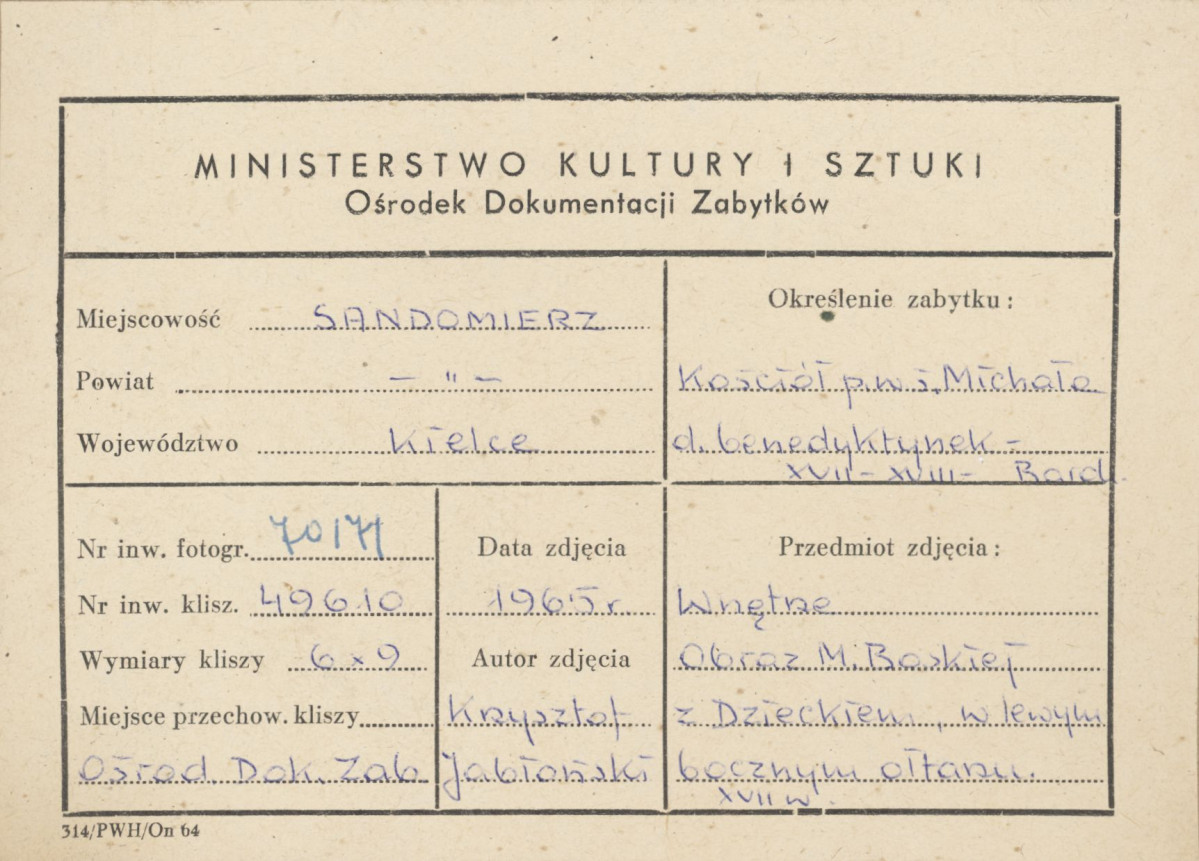 MINISTERSTWO KULTURY I SZTUKI
Ośrodek Dokumentacji Zabytków
Miejscowość SANDOMIERZ
Powiat — " —
Województwo Kielce
Określenie zabytku:
Kościół p.w. ś. Michała
d. benedyktynek -
XVII - XVIII -
Nr inw. fotogr. 70171
Nr inw. klisz. 49610
Wymiary kliszy 6 x 9
Miejsce przechow. kliszy
Ośrod. Dok. Zab
Data zdjęcia
1965 r
Autor zdjęcia
Krzysztof
Jabłoński
Przedmiot zdjęcia:
Wnętrze
Obraz M. Boskiej
z Dzieckiem, w lewym
bocznym ołtarzu.
XVII w.
314/PWH/On 64